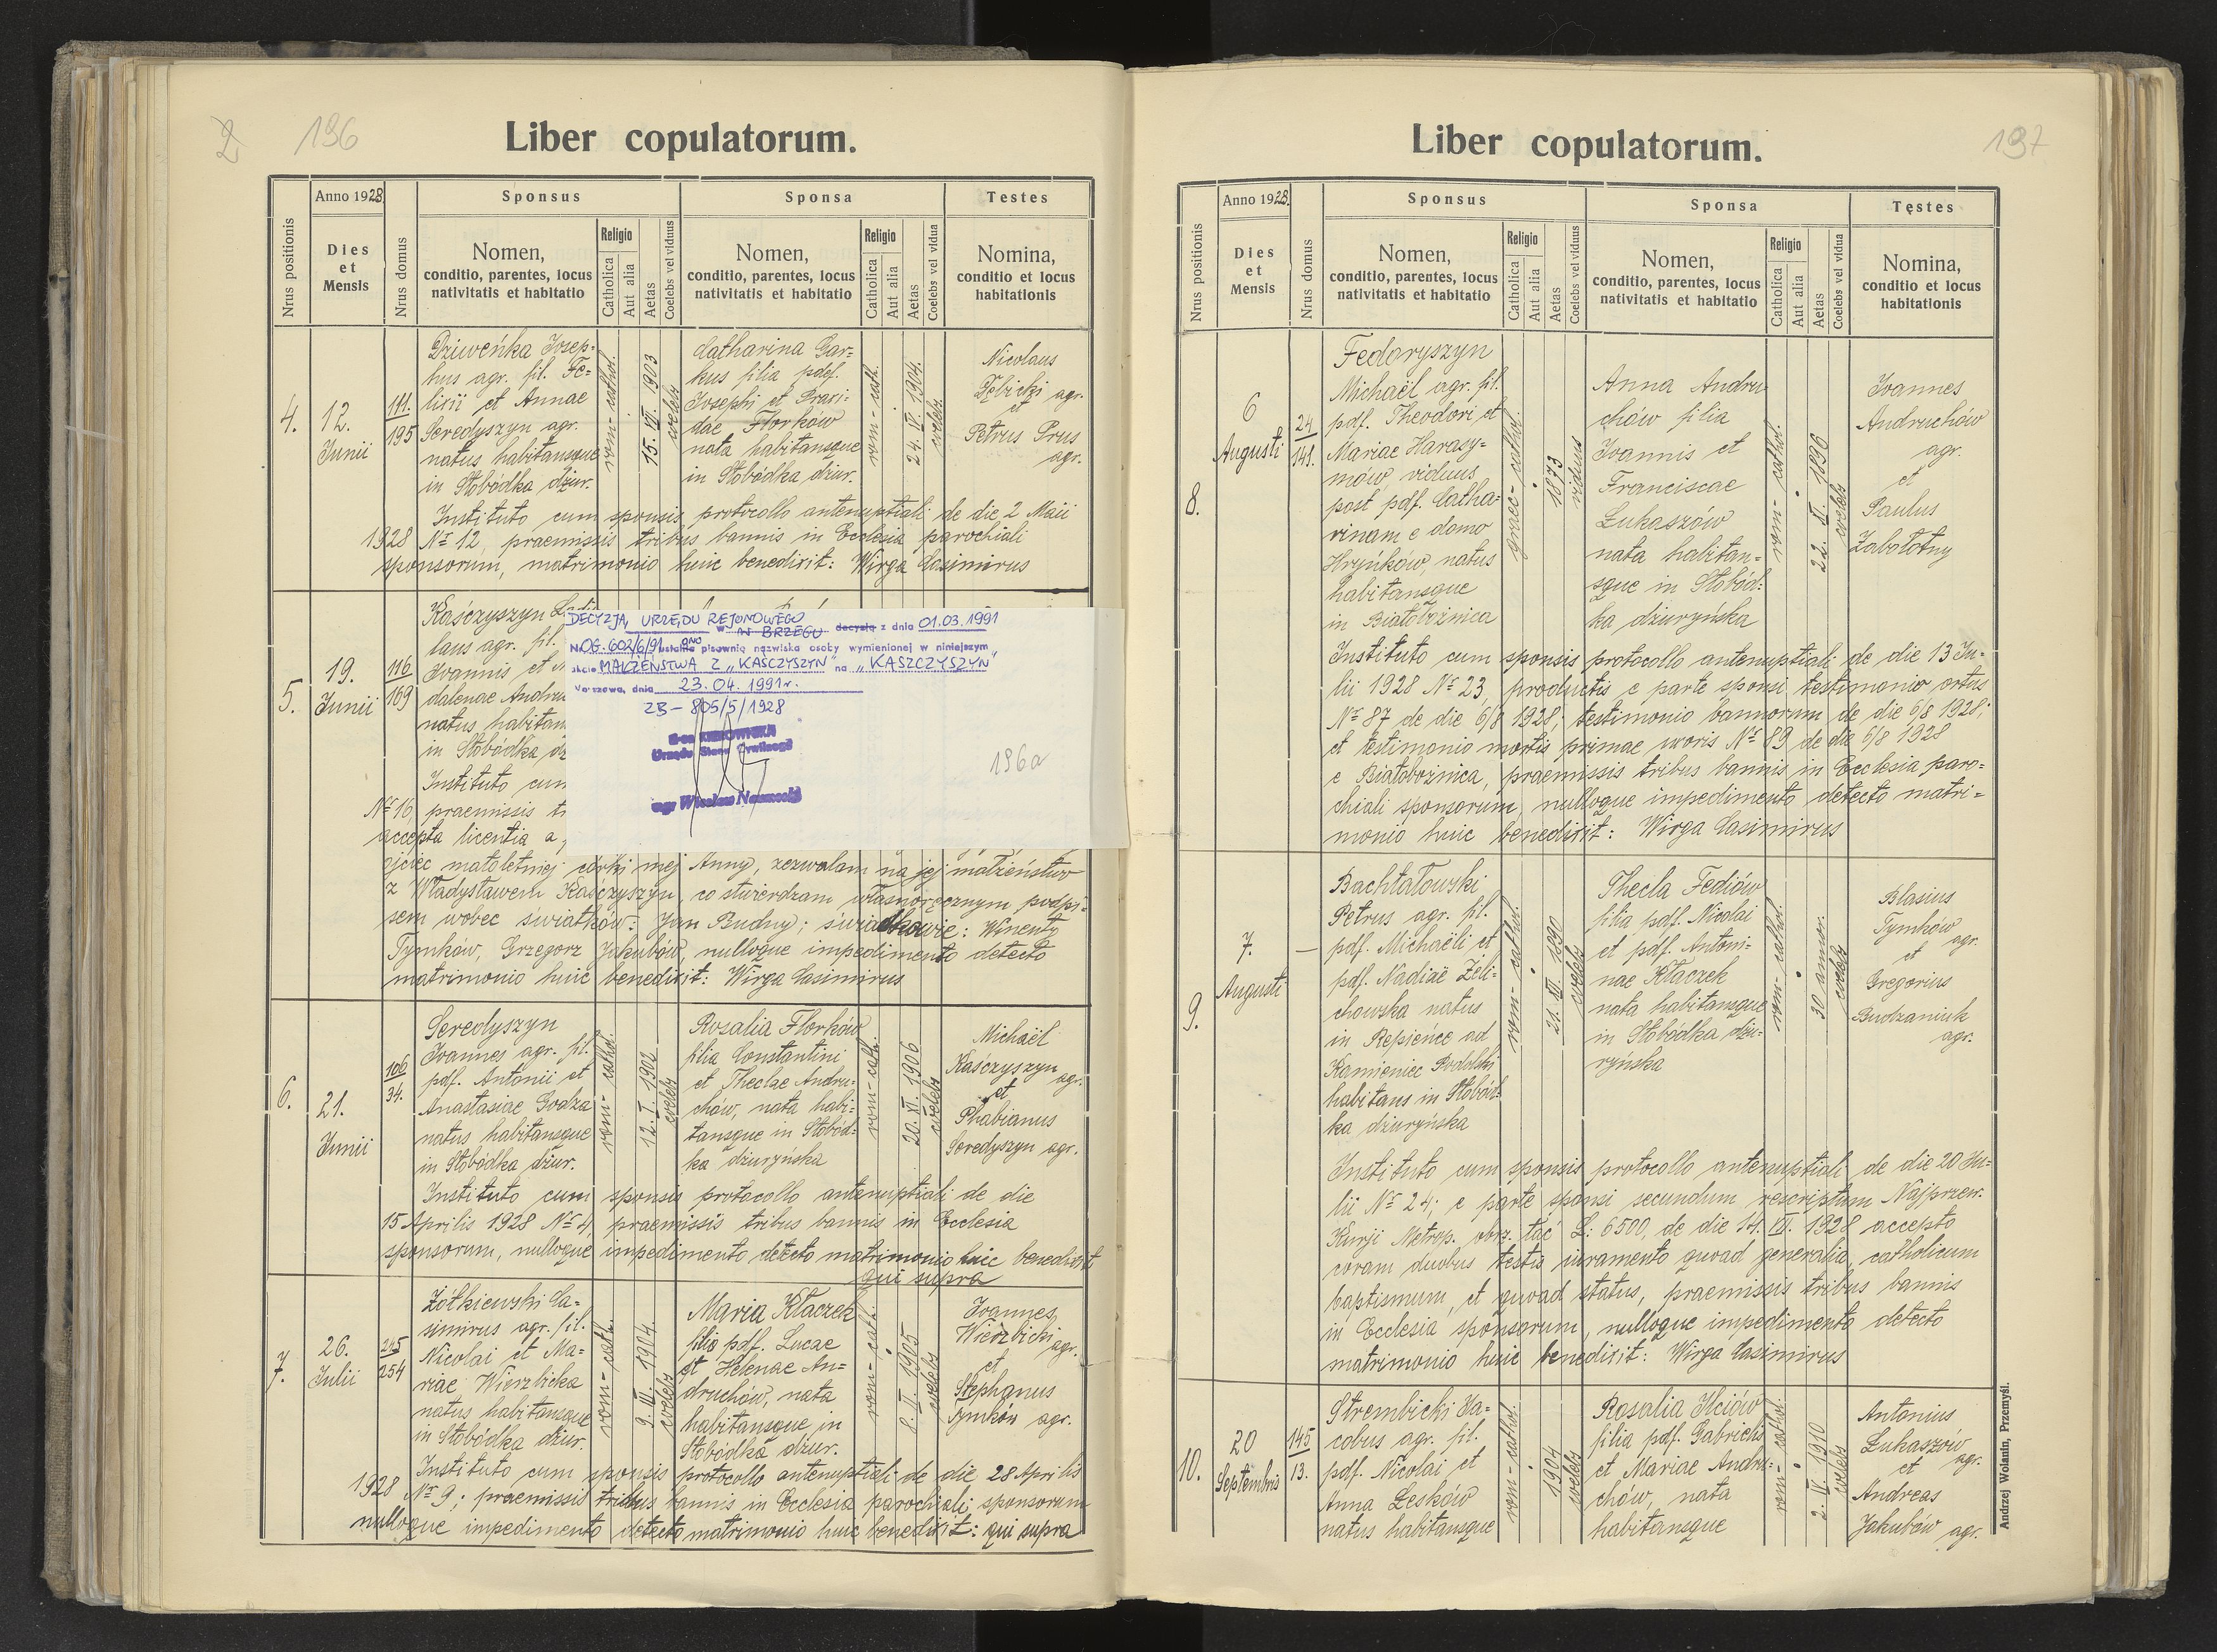 2 196
Liber copulatorum.
Nrus positionis
Anno 1928.
Dies
et
Mensis
Nrus domus
Sponsus
Nomen,
conditio, parentes, locus
nativitatis et habitatio
Religio
Catholica
Aut alia
Aetas
Coelebs vel viduus
Sponsa
Nomen,
conditio, parentes, locus
nativitatis et habitatio
Religio
Catholica
Aut alia
Aetas
Coelebs vel vidua
Testes
Nomina,
conditio et locus
habitationis
4.
12.
Junii
111.
195
Dziweńka Josep=
hus agr. fil. Fe=
licii et Annae
Seredyszyn agr.
natus habitansque
in Słobódka dżur.
rom-cathol.
15. VI. 1903
coelebs
Catharina Gar=
kus filia pdef.
Josephi et Praxi=
dae Florków
nata habitansque
in Słobódka dżur.
rom-cath.
24. V. 1904.
coelebs
Nicolaus
Dębicki agr.
et
Petrus Prus
agr.
Instituto cum sponsis protocollo antenuptiali de die 2 Maii
1928 Nr 12, praemissis tribus bannis in Ecclesia parochiali
sponsorum, matrimonio huic benedixit: Wirga Casimirus
5.
19.
Junii
116
169
Kaśczyszyn
laus agr. fil.
Joannis et
dalenae Andru
natus habitan
in Słobódka dż
Instituto cum
Nr 16, praemissis
accepta licentia a
DECYZJĄ URZĘDU REJONOWEGO
w BRZEGU decyzją z dnia 01.03.1991
Nr OG. 602/6/91 ustalono pisownię nazwiska osoby wymienionej w niniejszym
akcie MAŁŻEŃSTWA Z „KAŚCZYSZYN" na „KASZCZYSZYN"
Warszawa, dnia 23.04.1991r.
ZB - 805/5/1928
Urzędu Stanu Cywilnego
196a
ojciec małoletniej córki mej Anny, zezwalam na jej małżeństwo
z Władysławem Kaśczyszyn, co stwierdzam własnoręcznym podpi=
sem wobec świadków: Jan Budny; świadkowie: Wincenty
Tymków, Grzegorz Jakubów, nulloque impedimento detecto
matrimonio huic benedixit: Wirga Casimirus
6.
21.
Junii
106
34.
Seredyszyn
Joannes agr. fil.
pdf. Antonii et
Anastasiae Godza
natus habitansque
in Słobódka dżur.
rom-cathol.
12. I. 1902
coelebs
Rosalia Florków
filia Constantini
et Theclae Andru=
chów, nata habi=
tansque in Słobód=
ka dżuryńska
rom-cath.
20. XI. 1906
coelebs
Michaël
Kaśczyszyn
agr.
et
Phabianus
Seredyszyn agr.
Instituto cum sponsis protocollo antenuptiali de die
15 Aprilis 1928 Nr 4, praemissis tribus bannis in Ecclesia
sponsorum, nulloque impedimento detecto matrimonio huic benedixit
qui supra
7.
26.
Julii
245
254
Żółkiewski Ca=
simirus agr. fil.
Nicolai et Ma=
riae Wierzbicka
natus habitansque
in Słobódka dżur.
rom-cath.
9. III. 1904.
coelebs
Maria Kłaczek
filia pdf. Lucae
et Helenae An=
druchów, nata
habitansque in
Słobódka dżur.
rom-cath.
8. II. 1905
coelebs
Joannes
Wierzbicki
agr.
et
Stephanus
Tymków agr.
Instituto cum sponsis protocollo antenuptiali de die 28 Aprilis
1928 Nr 9; praemissis tribus bannis in Ecclesia parochiali sponsorum
nulloque impedimento detecto matrimonio huic benedixit: qui supra
197
Liber copulatorum.
Nrus positionis
Anno 1928.
Dies
et
Mensis
Nrus domus
Sponsus
Nomen,
conditio, parentes, locus
nativitatis et habitatio
Religio
Catholica
Aut alia
Aetas
Coelebs vel viduus
Sponsa
Nomen,
conditio, parentes, locus
nativitatis et habitatio
Religio
Catholica
Aut alia
Aetas
Coelebs vel vidua
Testes
Nomina,
conditio et locus
habitationis
8.
6
Augusti
24
141.
Fedoryszyn
Michaël agr. fil.
pdf. Theodori et
Mariae Harasy=
mów, viduus
post pdf. Catha=
rinam e domo
Hryńków, natus
habitansque
in Białobożnica
graec-cathol.
1873
viduus
Anna Andru
chów filia
Joannis et
Franciscae
Łukaszów
nata habitan=
sque in Słobód=
ka dżuryńska
rom-cathol.
22. II. 1896
coelebs
Joannes
Andruchów
agr.
et
Paulus
Zabołotny
Instituto cum sponsis protocollo antenuptiali de die 13 Ju=
lii 1928 Nr 23, productis e parte sponsi testimonio ortus
Nr 87 de die 6/8 1928; testimonio bannorum de die 6/8 1928;
et testimonio mortis primae uxoris Nr 89 de die 6/8 1928
e Białobożnica, praemissis tribus bannis in Ecclesia paro=
chiali sponsorum, nulloque impedimento detecto matri=
monio huic benedixit: Wirga Casimirus
9.
7.
Augusti
—
Bachtałowski
Petrus agr. fil.
pdf. Michaëli et
pdf. Nadiae Zeli=
chowska natus
in Repieńce ad
Kamieniec Podolski
habitans in Słobód=
ka dżuryńska
rom-cathol.
21. III. 1890
coelebs
Thecla Fediów
filia pdf. Nicolai
et pdf. Antoni=
nae Kłaczek
nata habitansque
in Słobódka dżu=
ryńska
rom-cathol.
30 annor.
coelebs
Blasius
Tymków
agr.
et
Gregorius
Budzaniuk
agr.
Instituto cum sponsis protocollo antenuptiali de die 20 Ju=
lii Nr 24; e parte sponsi secundum rescriptum Najprzew.
Kurji Metrop. obrz. łać L: 6500, de die 14. VII. 1928 accepto
coram duobus testis iuramento quoad generalia, catholicum
baptismum, et quoad status, praemissis tribus bannis
in Ecclesia sponsorum, nulloque impedimento detecto
matrimonio huic benedixit: Wirga Casimirus
10.
20
Septembris
145
13.
Strembicki Ja=
cobus agr. fil.
pdf. Nicolai et
Anna Leśków
natus habitansque
rom-cathol.
1904
coelebs
Rosalia Ilciów
filia pdf. Gabrielis
et Mariae Andru=
chów, nata
habitansque
rom-cathol.
2. II. 1910
coelebs
Antonius
Łukaszów
agr.
et
Andreas
Jakubów agr.
Andrzej Wolanin, Przemyśl.